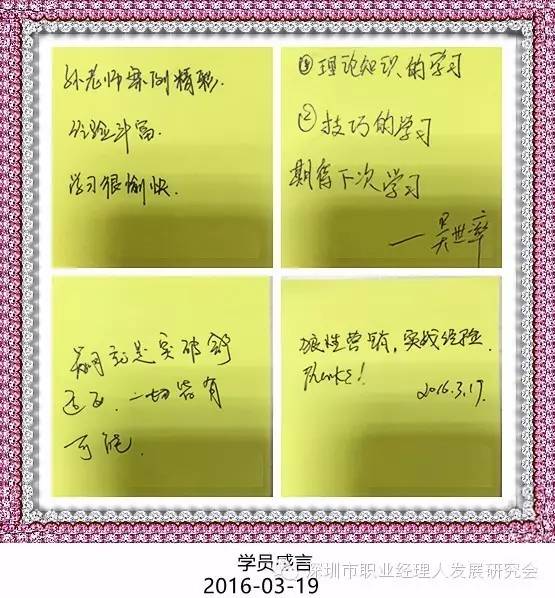 孙老师案例精彩.
经验丰富.
学习很愉快.
①理论知识的学习
②技巧的学习
期待下次学习
一吴世率
就是突破舒
适区.一切皆有
可能.
狼性营销,实战经验.
Thanks!
2016.3.19.
学员感言
2016-03-19
深圳市职业经理人发展研究会